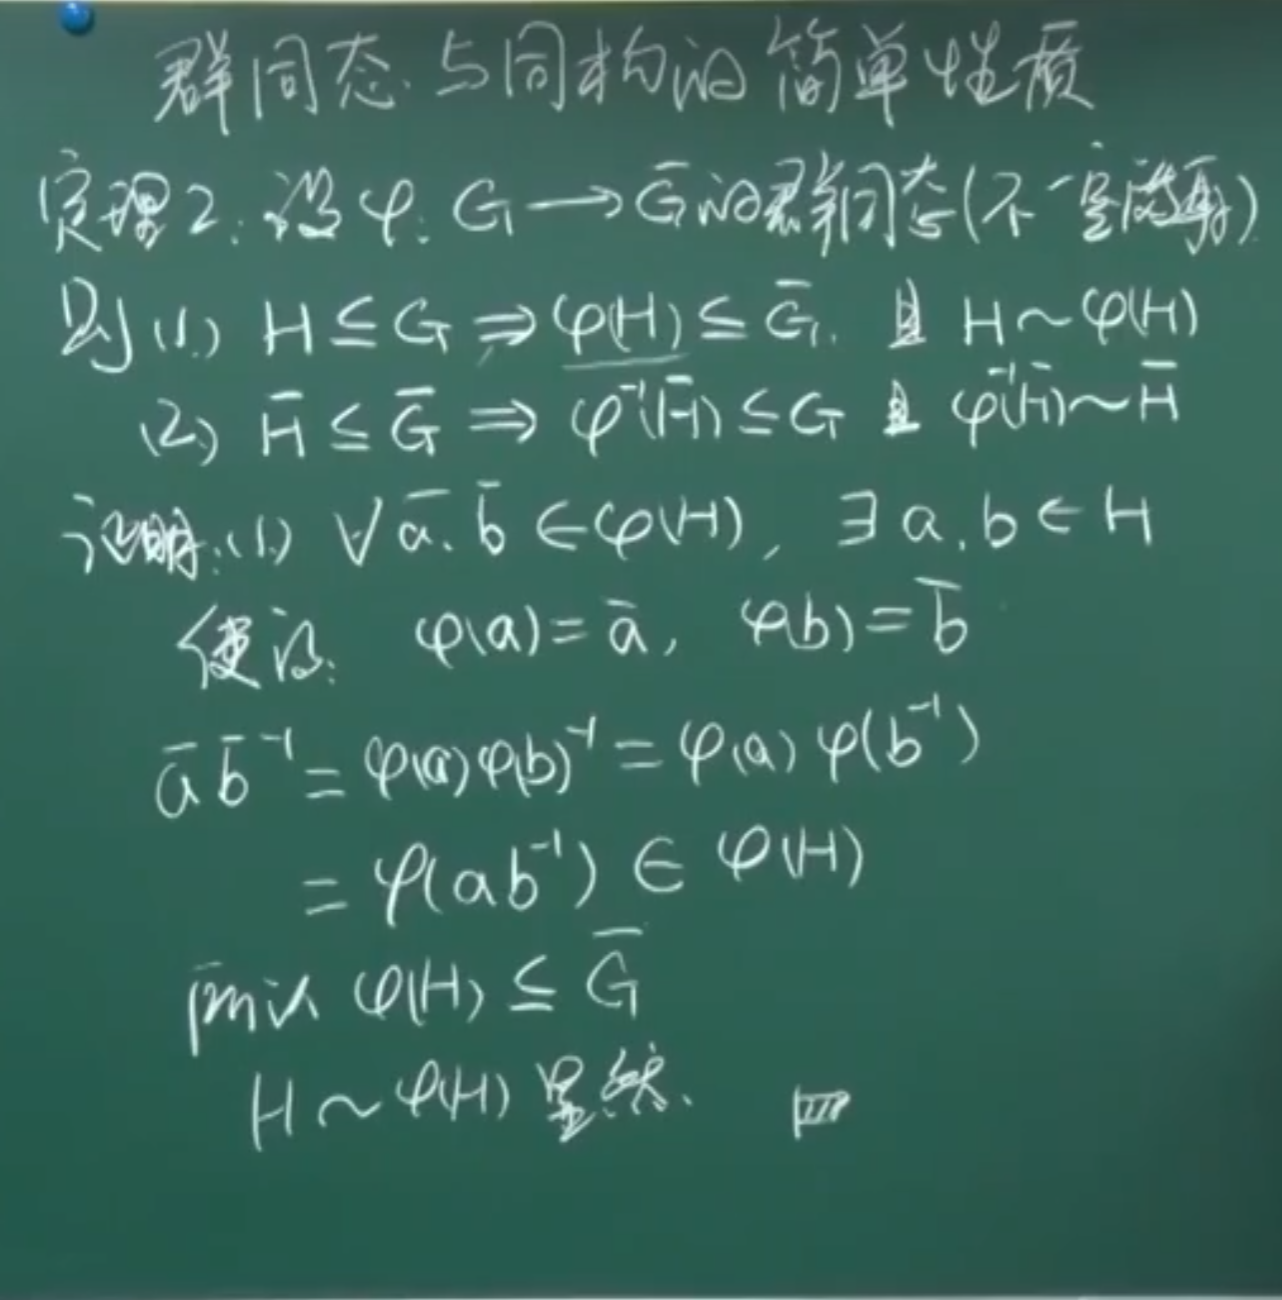 群同态与同构的简单性质
定理2.设φ:G→Ḡ的群同态(不一定满射)
则(1) H≤G⇒φ(H)≤Ḡ. 且 H~φ(H)
(2) H̄≤Ḡ⇒φ⁻¹(H̄)≤G 且 φ⁻¹(H̄)~H̄
证明:(1) ∀ā.b̄∈φ(H), ∃a.b∈H
使得: φ(a)=ā, φ(b)=b̄
āb̄⁻¹=φ(a)φ(b)⁻¹=φ(a)φ(b⁻¹)
=φ(ab⁻¹)∈φ(H)
所以 φ(H)≤Ḡ
H~φ(H)显然.